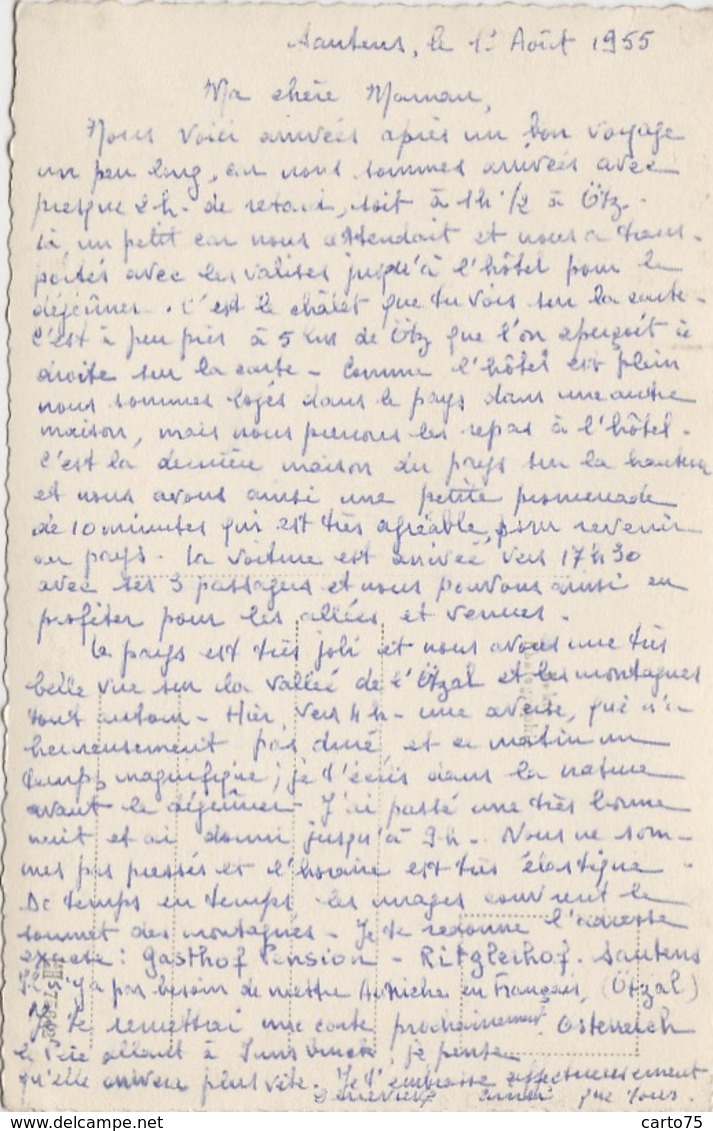 Sautens, le 1er Août 1955
Ma chère Maman,
Nous voici arrivées après un bon voyage
un peu long, car nous sommes arrivées avec
presque 2h. de retard, soit à 1h 1/2 à Ötz.
Là un petit car nous attendait et nous a trans-
portés avec les valises jusqu'à l'hôtel pour le
déjeûner. C'est le châlet que tu vois sur la carte.
C'est à peu près à 5 kms de Ötz que l'on aperçoit à
droite sur la carte - Comme l'hôtel est plein
nous sommes logés dans le pays dans une autre
maison, mais nous prenons les repas à l'hôtel.
C'est la dernière maison du pays sur la hauteur
et nous avons ainsi une petite promenade
de 10 minutes qui est très agréable, pour revenir
au pays. La voiture est arrivée vers 17h30
avec ses 3 passagers et nous pouvons ainsi en
profiter pour les allées et venues.
Le pays est très joli et nous avons une très
belle vue sur la vallée de l'Ötzal et les montagnes
tout autour - Hier, vers 4h - une averse, qui n'a
heureusement pas duré et ce matin un
temps magnifique ; je t'écris dans la nature
avant le déjeûner - J'ai passé une très bonne
nuit et ai dormi jusqu'à 9h -. Nous ne som-
mes pas pressés et l'horaire est très élastique -
De temps en temps les nuages couvrent le
sommet des montagnes - Je te redonne l'adresse
exacte : Gasthof Pension - Ritzlerhof. Sautens
n'y a pas besoin de mettre Autriche en Français, (Ötzal)
Je te remettrai une carte prochainement. Osterreich
le Père allant à Innsbruck, je pense
qu'elle arrivera plus vite. Je t'embrasse affectueusement
Geneviève ainsi que tous.
carto75